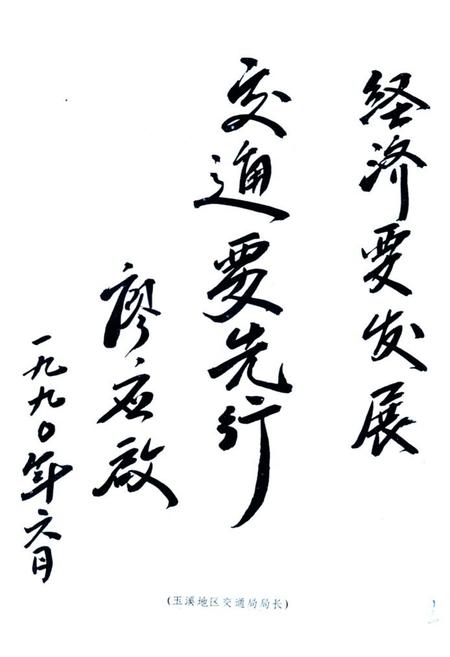 经济要发展
交通要先行
廖应启
一九九〇年六月
(玉溪地区交通局局长)